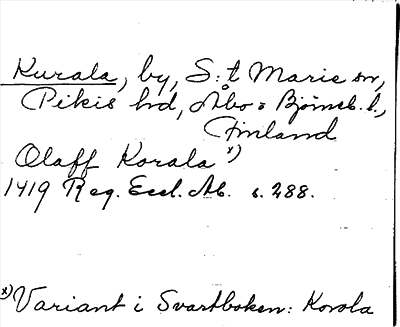 Kurala, by, S:t Marie sn,
Pikis hd, Åbo o Björneb. l.,
Finland
Olaff Korala x)
1419 Reg. Eccl. Ab. s. 288.
x) Variant i Svartboken: Korola